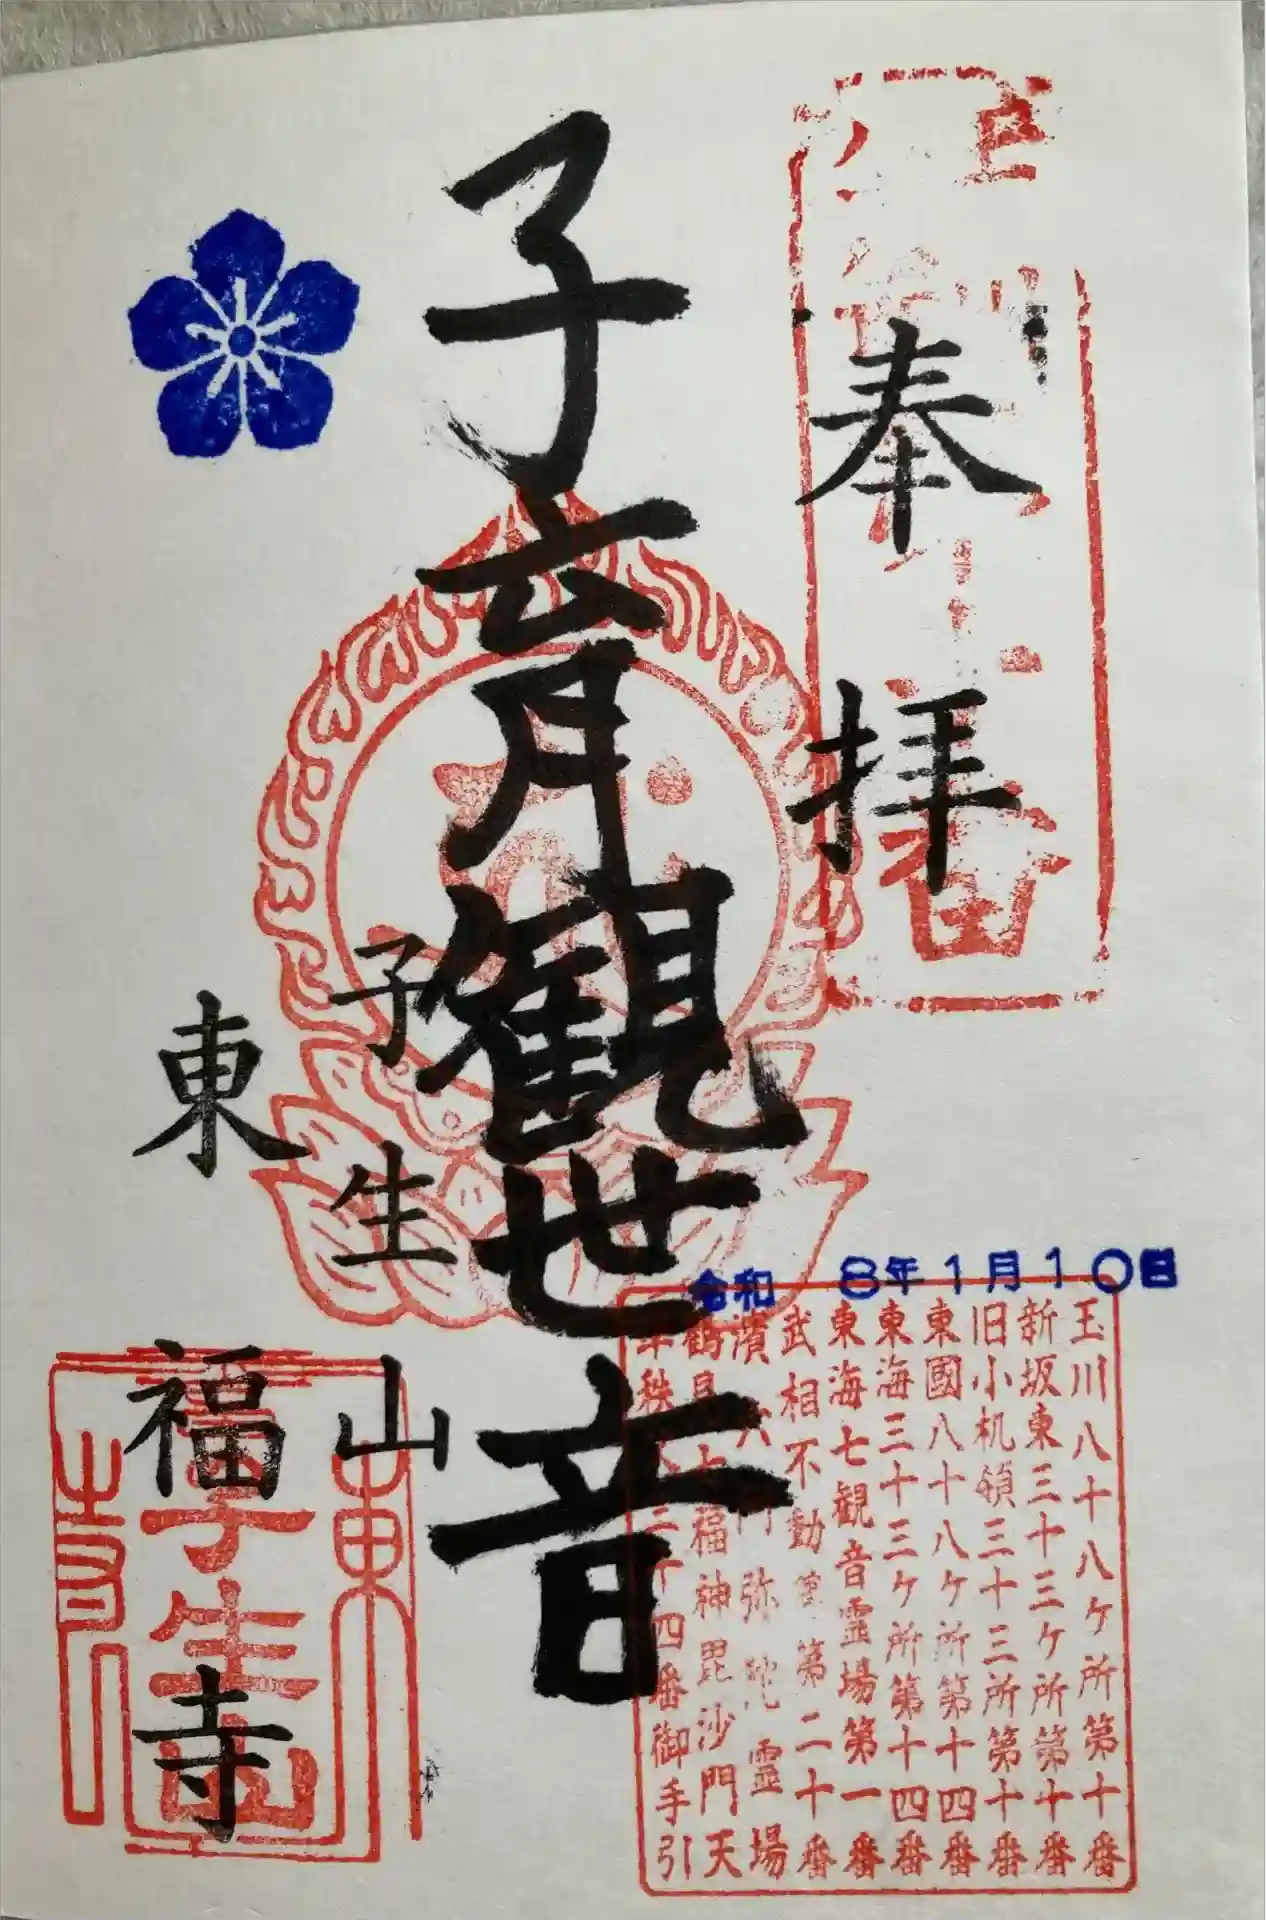 奉拝
子育観世音
子生山
東福寺
令和 8年1月10日
玉川八十八ケ所第十番
新坂東三十三ケ所第十番
旧小机領三十三所第十番
東國八十八ケ所第十四番
東海三十三ケ所第十四番
東海七観音霊場第一番
武相不動第二十番
弥陀霊場
福神毘沙門天
三十四番御手引
東
子生山
寺